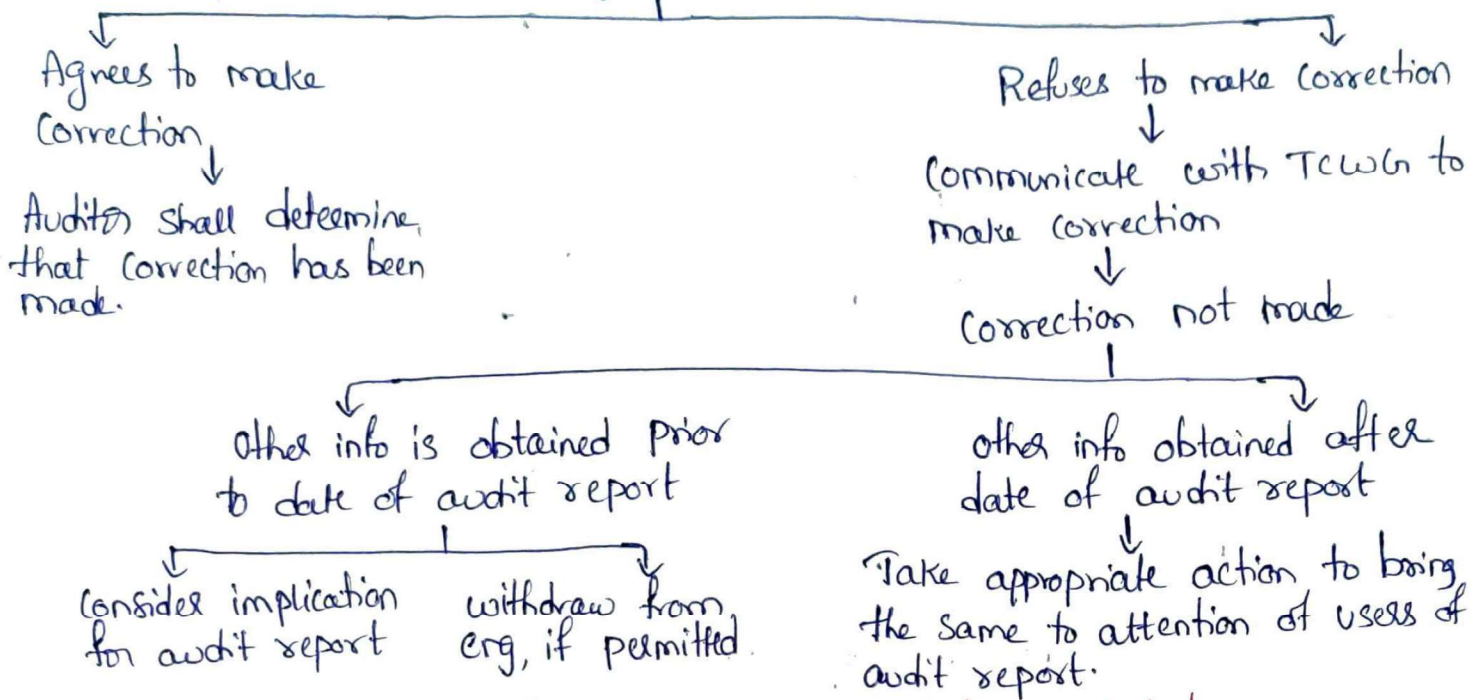 Agrees to make
Correction
Auditor shall determine
that Correction has been
made.
Refuses to make Correction
Communicate with TCWG to
make correction
Correction not made
Other info is obtained prior
to date of audit report
Consider implication
for audit report
withdraw from
eng, if permitted.
other info obtained after
date of audit report
Take appropriate action to bring
the same to attention of users of
audit report.